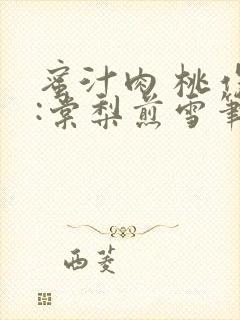 蜜汁肉桃作
:棠梨煎雪筆
西菱